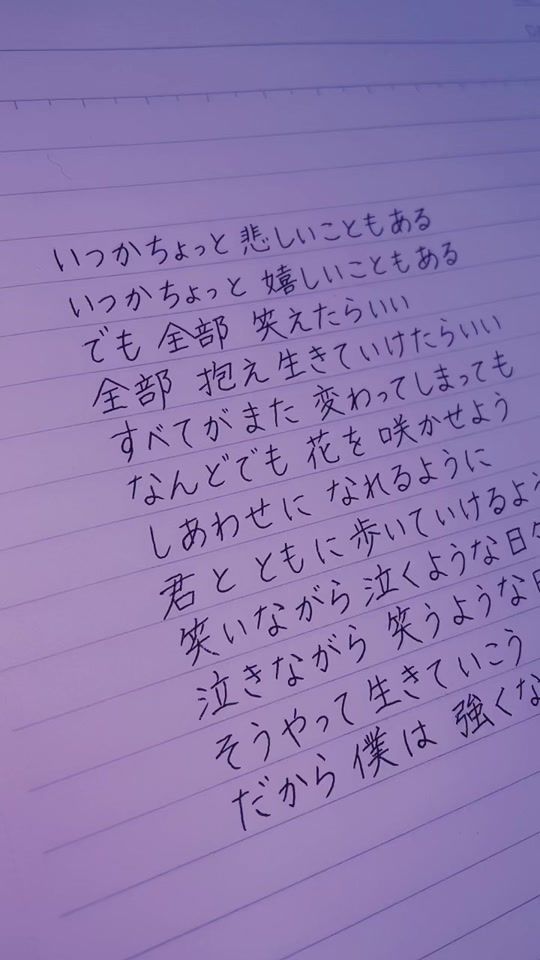 いつかちょっと 悲しいこともある
いつかちょっと 嬉しいこともある
でも 全部 笑えたらいい
全部 抱え生きていけたらいい
すべてがまた 変わってしまっても
なんどでも 花を 咲かせよう
しあわせに なれるように
君と ともに 歩いていけるよう
笑いながら 泣くような日々
泣きながら 笑うような
そうやって 生きていこう
だから 僕は 強くな